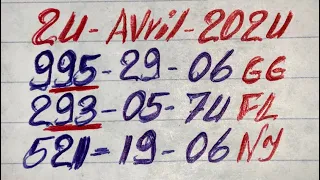 24-AVril-2024
995-29-06 GG
293-05-74 FL
521=19-06 NY